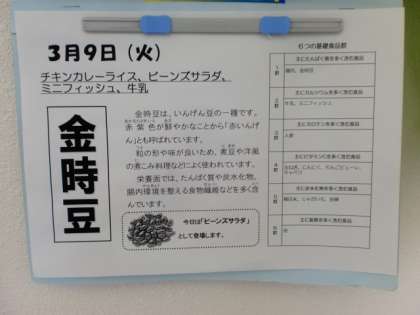 3月9日（火）
チキンカレーライス、ビーンズサラダ、
ミニフィッシュ、牛乳
金時豆
金時豆は、いんげん豆の一種です。
赤紫色が鮮やかなことから「赤いんげ
ん」とも呼ばれています。
粒の形や味が良いため、煮豆や洋風
の煮込み料理などによく使われています。
栄養面では、たんぱく質や炭水化物、
腸内環境を整える食物繊維などを多く含
んでいます。
今日は「ビーンズサラダ」
として登場します。
6つの基礎食品群
1群
主にたんぱく質を多く含む食品
鶏肉、金時豆
2群
主にカルシウムを多く含む食品
牛乳、ミニフィッシュ
3群
主にカロテンを多く含む食品
人参
4群
主にビタミンCを多く含む食品
5群
主に炭水化物を多く含む食品
6群
主に脂質を多く含む食品
油